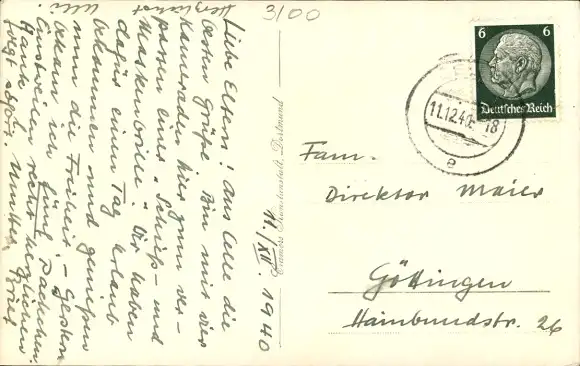 3/00
6 6
Deutsches Reich
11.12.40. 18
e
Fam.
Direktor Maier
Göttingen
Hainbundstr. 26
Cramers Kunstanstalt, Dortmund
11./XII. 1940
Liebe Eltern! Aus Celle die
besten Grüße. Bin mit vier
Kameraden hier zum Ver-
passen einer „Schieß- und
Maskenbrille". Wir haben
dafür einen Tag Urlaub
bekommen und genießen
nun die Freiheit. – Gestern
bekam ich fünf Päckchen.
Einstweilen recht herzlichen
Dank! Mutters Brief
folgt
Herzlichst